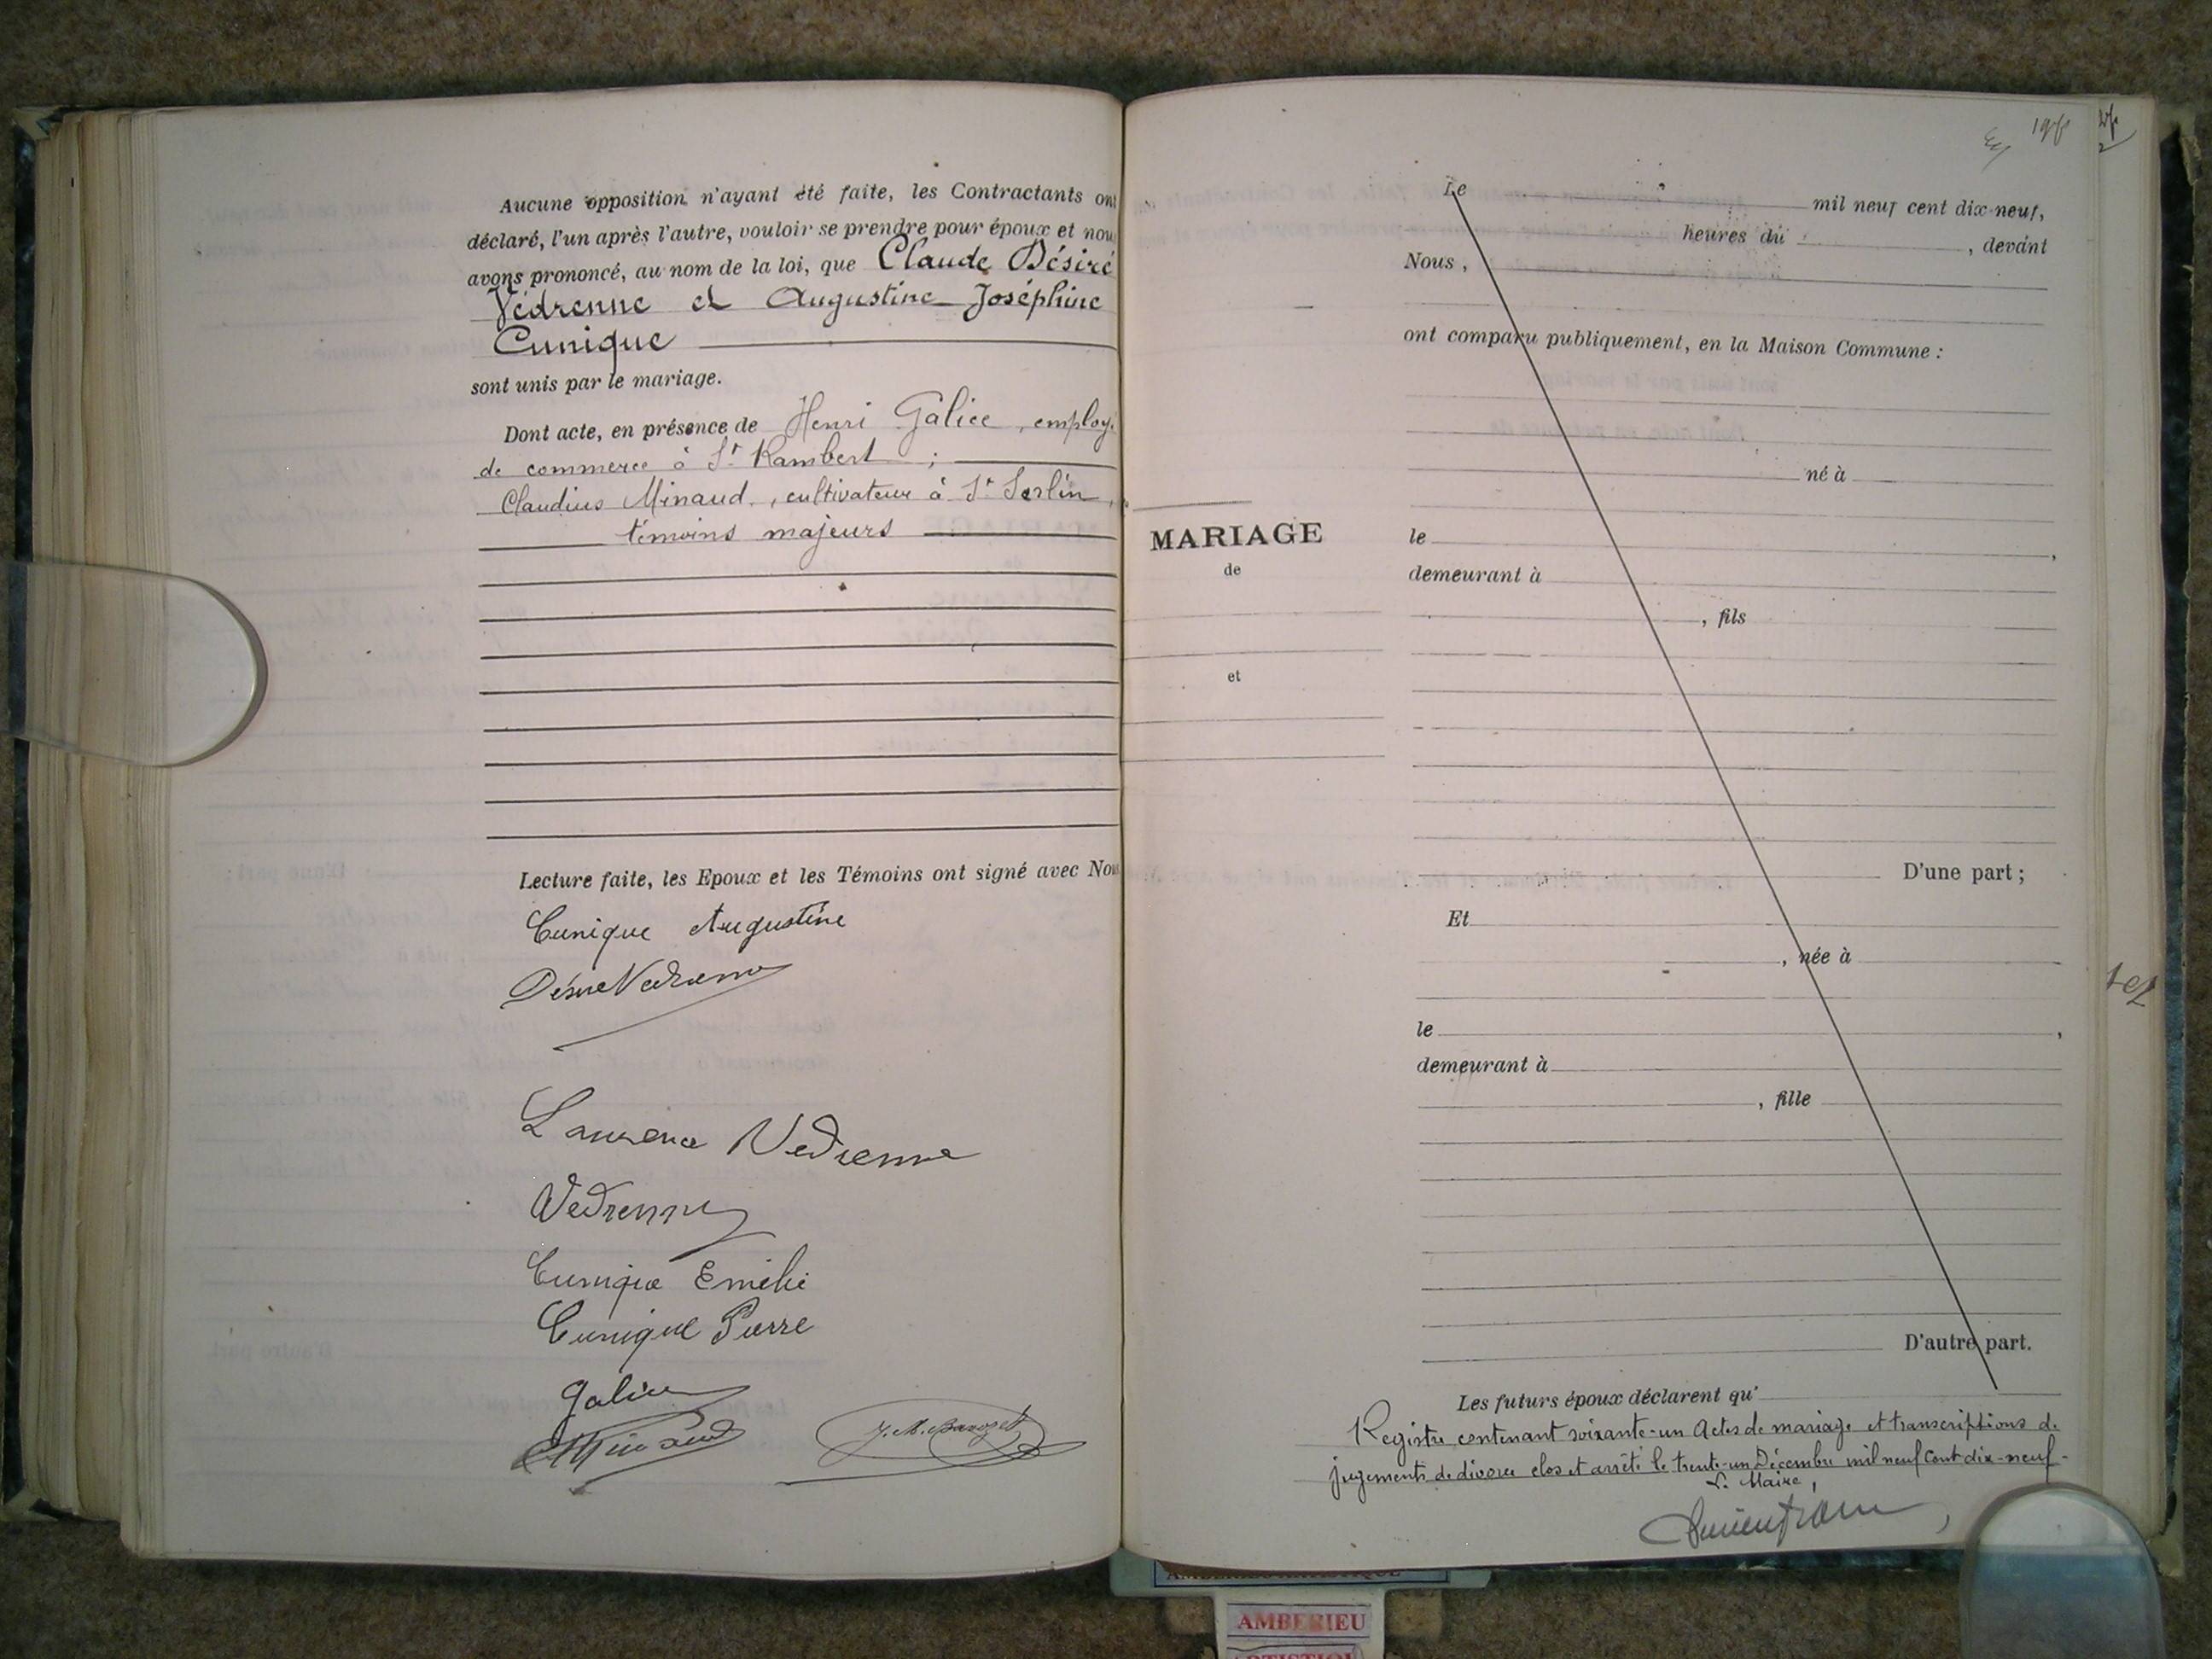 Aucune opposition n'ayant été faite, les Contractants ont
déclaré, l'un après l'autre, vouloir se prendre pour époux et nou
avons prononcé, au nom de la loi, que Claude Désiré
Védrenne et Augustine Joséphine
Cunique
sont unis par le mariage.
Dont acte, en présence de Henri Galice, employé
de commerce à St Rambert ;
Claudius Minaud, cultivateur à St Sorlin,
témoins majeurs
Lecture faite, les Epoux et les Témoins ont signé avec Nou
Cunique Augustine
Désiré Vedrenne
Laurence Vedrenne
Vedrenne
Cunique Emélie
Cunique Pierre
Galice
Minaud
198
Le mil neuf cent dix-neuf,
heures du , devant
Nous,
ont comparu publiquement, en la Maison Commune :
né à
MARIAGE
de
et
le ,
demeurant à
, fils
D'une part ;
Et
, née à
le ,
demeurant à
, fille
D'autre part.
Les futurs époux déclarent qu'
Registre contenant soixante-un Actes de mariage et transcriptions de
jugements de divorce clos et arrêté le trente-un Décembre mil neuf cent dix-neuf-
Le Maire,
AMBERIEU